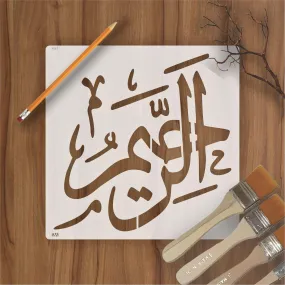 الرَّحِيمُ